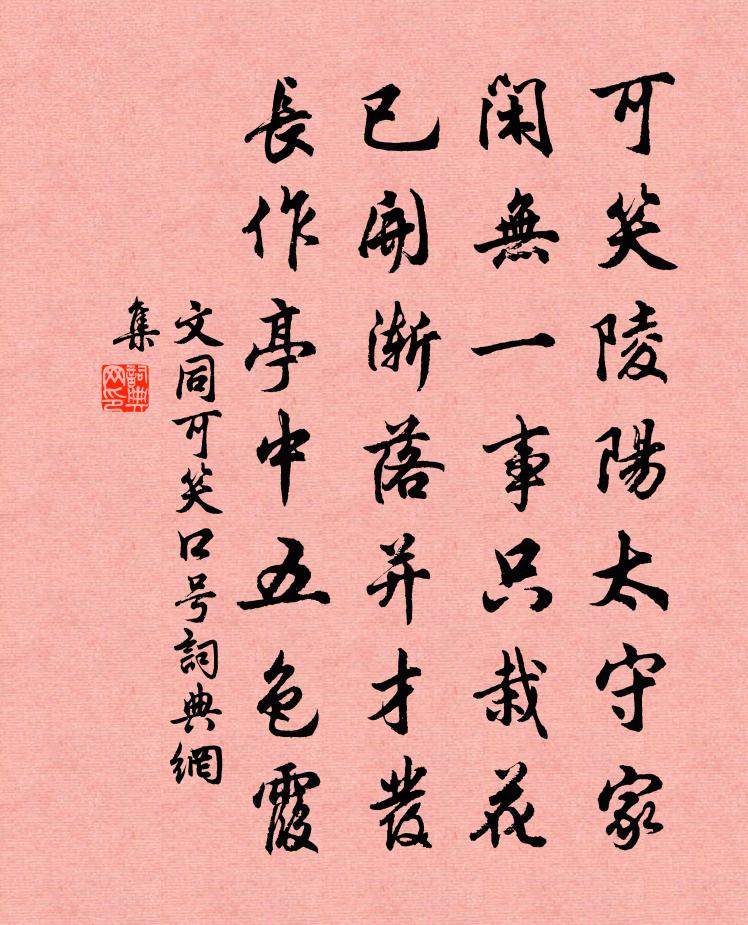 可笑陵陽太守家
閑無一事只栽花
已開漸落并才發
長作亭中五色霞
文同可笑口号詞典網
集
詞典網印